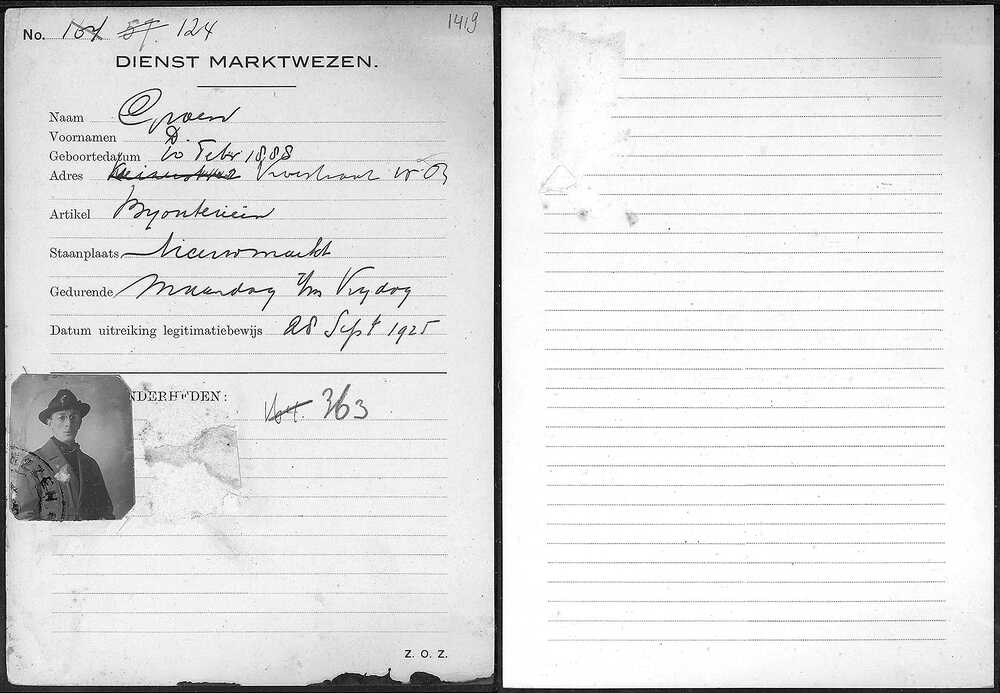 1419
No. 164 57. 124
DIENST MARKTWEZEN.
Naam Groen
Voornamen D.
Geboortedatum 20 Febr 1888
Adres
Artikel Byouterieën
Staanplaats Nieuwmarkt
Gedurende Maandag t/m Vrydag
Datum uitreiking legitimatiebewijs 28 Sept 1925
NDERHEDEN:
363
ZEN
Z. O. Z.